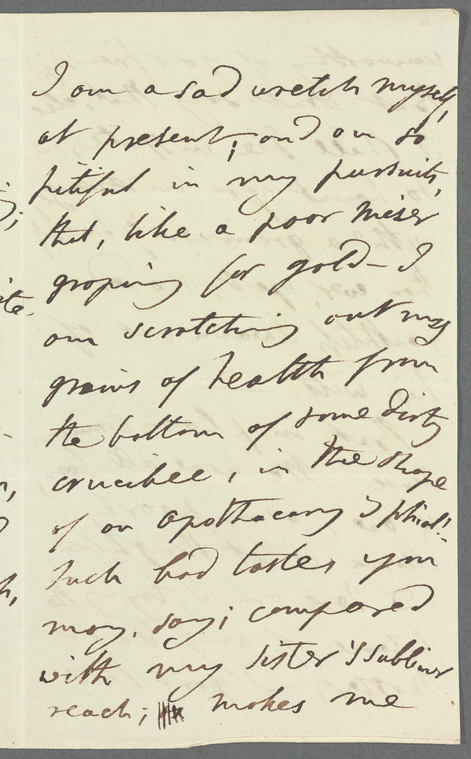 I am a sad wretch myself,
at present; and am so
pitiful in my pursuits,
that, like a poor Miser
groping for gold - I
am scratching out my
grains of health from
the bottom of some dirty
crucible, in the shape
of an apothecary's phial!-
Such bad tastes you
may, say; compared
with my sister's sublimer
reach; makes me